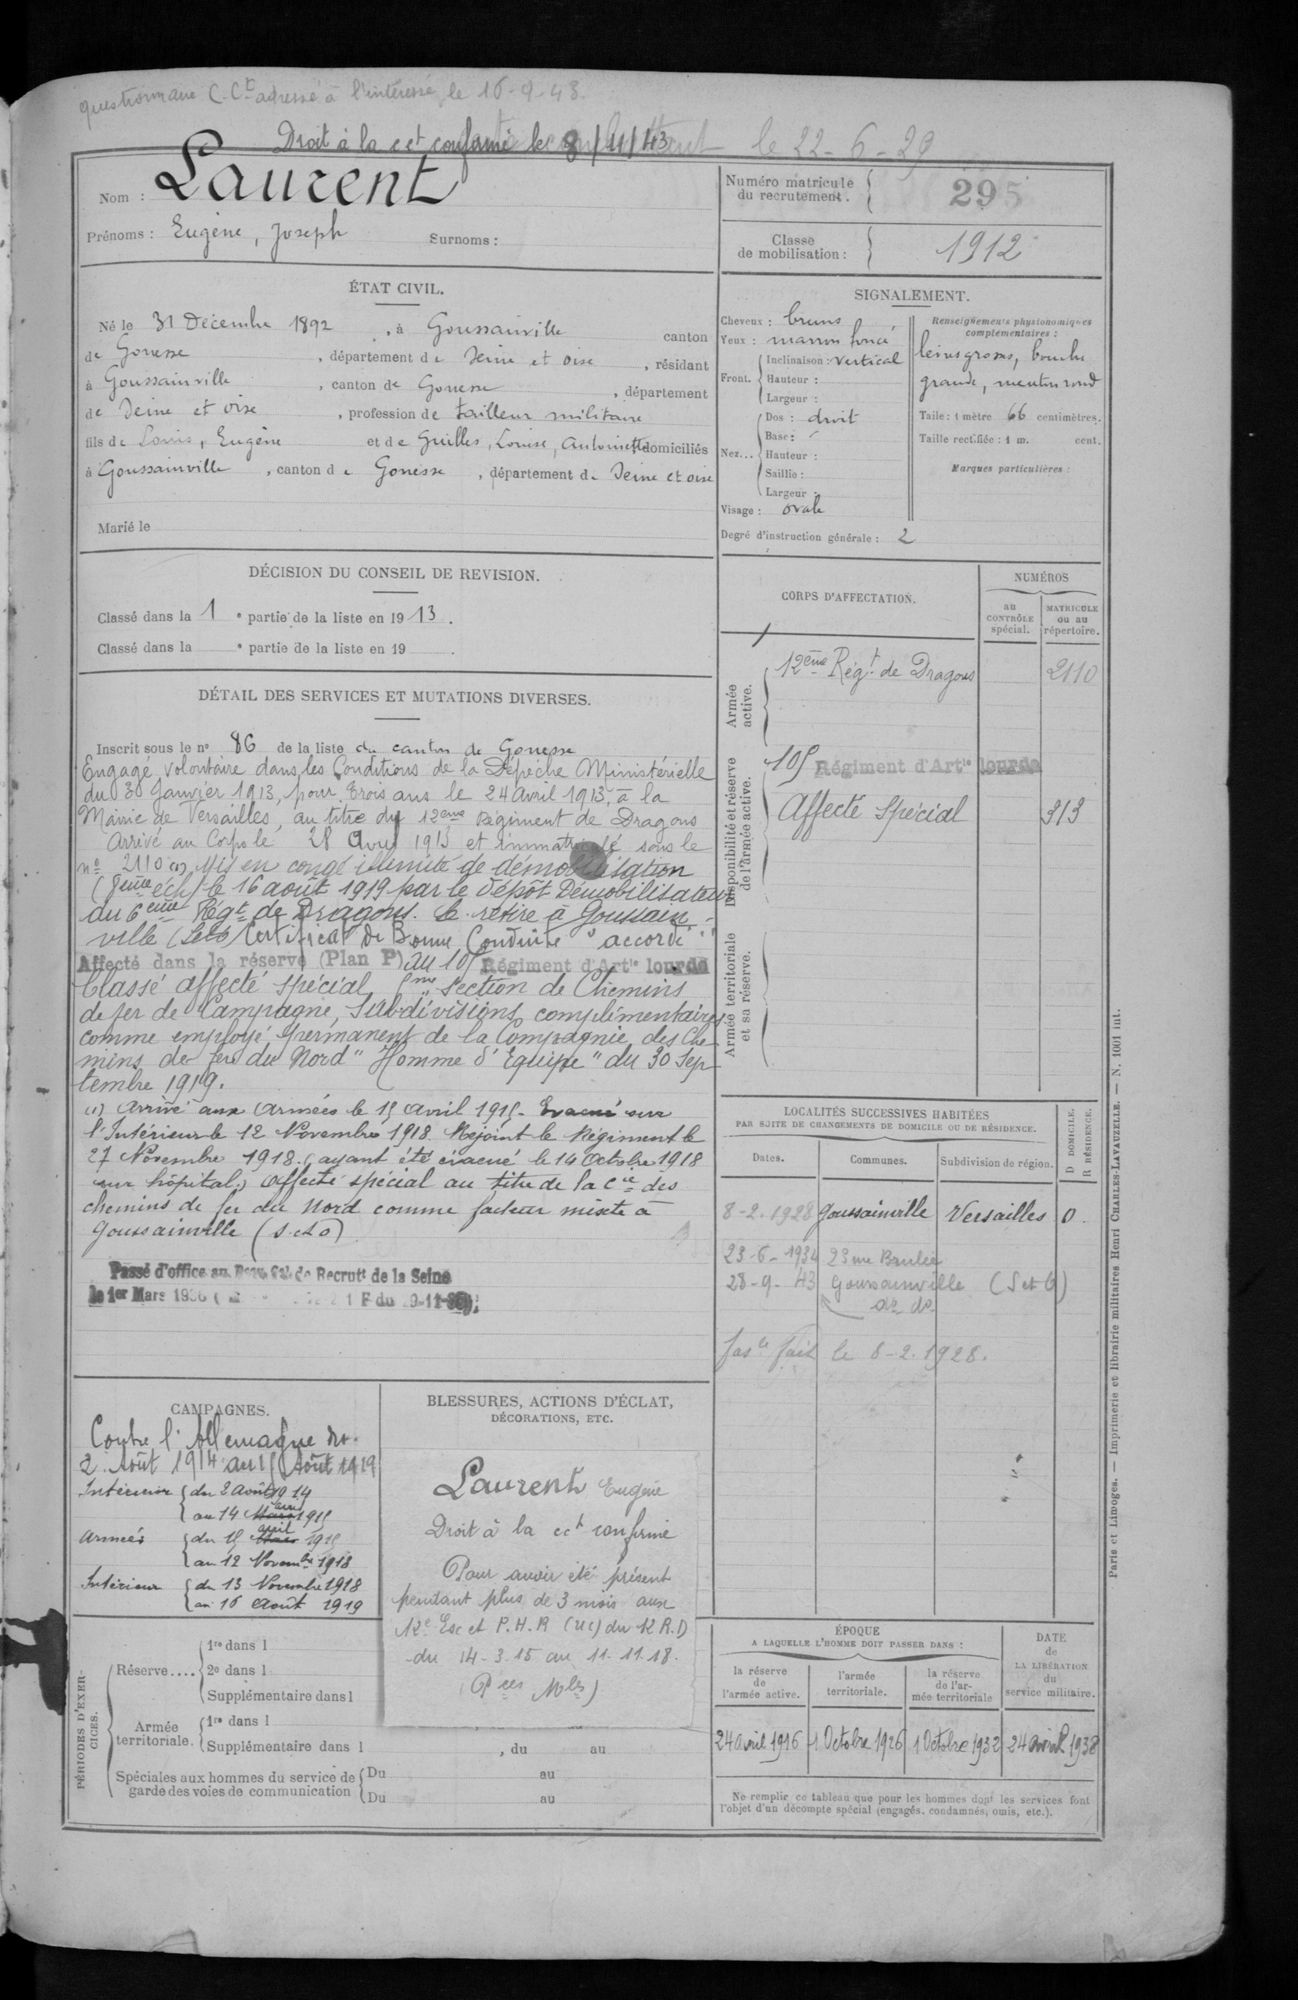 questionnaire C.Ct adressé à l'intéressé le 16-9-43.
Droit à la cct confirmé le 8/11/43 le 22-6-29
Nom : Laurent
Prénoms : Eugène, Joseph Surnoms :
Numéro matricule du recrutement. 295
Classe de mobilisation : 1912
ÉTAT CIVIL.
Né le 31 Décembre 1892, à Goussainville canton
de Gonesse, département de Seine et oise, résidant
à Goussainville, canton de Gonesse, département
de Seine et oise, profession de tailleur militaire
fils de Louis, Eugène et de Guilles, Louise, Antoinette domiciliés
à Goussainville, canton de Gonesse, département de Seine et oise
Marié le
SIGNALEMENT.
Cheveux : bruns
Yeux : marron foncé
Front. Inclinaison : vertical
Hauteur :
Largeur :
Nez... Dos : droit
Base :
Hauteur :
Saillie :
Largeur :
Visage : ovale
Renseignements physionomiques complémentaires :
grosses, bouche
grande, menton rond
Taille : 1 mètre 66 centimètres.
Taille rectifiée : 1 m. cent.
Marques particulières :
Degré d'instruction générale : 2
DÉCISION DU CONSEIL DE REVISION.
Classé dans la 1e partie de la liste en 1913.
Classé dans la e partie de la liste en 19 .
DÉTAIL DES SERVICES ET MUTATIONS DIVERSES.
Inscrit sous le n° 86 de la liste du canton de Gonesse
Engagé volontaire dans les Conditions de la Dépêche Ministérielle
du 30 Janvier 1913, pour trois ans le 24 Avril 1913, à la
Mairie de Versailles, au titre du 12ème Régiment de Dragons
Arrivé au Corps le 28 Avril 1913 et immatriculé sous le
n° 2110 (1) Mis en congé illimité de démobilisation
éch) le 16 août 1919 par le dépôt Démobilisateur
du 6ème Régt de Dragons. Se retire à Goussain-
ville Certificat de Bonne Conduite "accordé"
Affecté dans la réserve (Plan P) au 105 Régiment d'Artie lourde
Classé affecté spécial Section de Chemins
de fer de Campagne, Subdivisions complémentaires
comme employé permanent de la Compagnie des Che-
mins de fer du Nord "Homme d'Equipe" du 30 Sep-
tembre 1919.
(1) Arrivé aux Armées le 15 Avril 1915. Evacué sur
l'Intérieur le 12 Novembre 1918. Rejoint le Régiment le
27 Novembre 1918. (ayant été évacué le 14 Octobre 1918
sur hôpital) Affecté spécial au titre de la Cie des
chemins de fer du Nord comme facteur mixte à
Goussainville (S. et O)
Passé d'office au Bureau de Recrutt de la Seine
le 1er Mars 1936
CORPS D'AFFECTATION.
NUMÉROS
au CONTRÔLE spécial.
MATRICULE ou au répertoire.
Armée active.
12ème Régt de Dragons 2110
Disponibilité et réserve de l'armée active.
105 Régiment d'Artie lourde
Affecté Spécial 313
Armée territoriale et sa réserve.
LOCALITÉS SUCCESSIVES HABITÉES
PAR SUITE DE CHANGEMENTS DE DOMICILE OU DE RÉSIDENCE.
Dates. Communes. Subdivision de région. D DOMICILE. R RÉSIDENCE.
8-2.1928 Goussainville Versailles D.
23-6-1934 23 rue Brulée
28-9-43 Goussainville (S et O)
fait le 8-2.1928.
CAMPAGNES.
Contre l'Allemagne du
2 Août 1914 au 15 Août 1919
Intérieur du 2 Août 1914
au 14 Mars avril 1915
Armées du 15 Mars avril 1915
au 12 Novembre 1918
Intérieur du 13 Novembre 1918
au 16 Août 1919
BLESSURES, ACTIONS D'ÉCLAT,
DÉCORATIONS, ETC.
Laurent Eugène
Droit à la cct confirmé
Pour avoir été présent
pendant plus de 3 mois aux
Esc et P.H.R (uc) du 12 R.D
du 14-3.15 au 11.11.18.
(Pces Mles)
PÉRIODES D'EXERCICES.
Réserve.... 1re dans l
2e dans l
Supplémentaire dans l
Armée territoriale. 1re dans l
Supplémentaire dans l , du au
Spéciales aux hommes du service de garde des voies de communication Du au
Du au
ÉPOQUE
A LAQUELLE L'HOMME DOIT PASSER DANS :
la réserve de l'armée active.
l'armée territoriale.
la réserve de l'armée territoriale
DATE de LA LIBÉRATION du service militaire.
24 avril 1916 1 Octobre 1926 1 Octobre 1932 24 avril 1938
Ne remplir ce tableau que pour les hommes dont les services font
l'objet d'un décompte spécial (engagés, condamnés, omis, etc.).
Paris et Limoges. — Imprimerie et librairie militaires Henri CHARLES-LAVAUZELLE. — N. 1001 int.